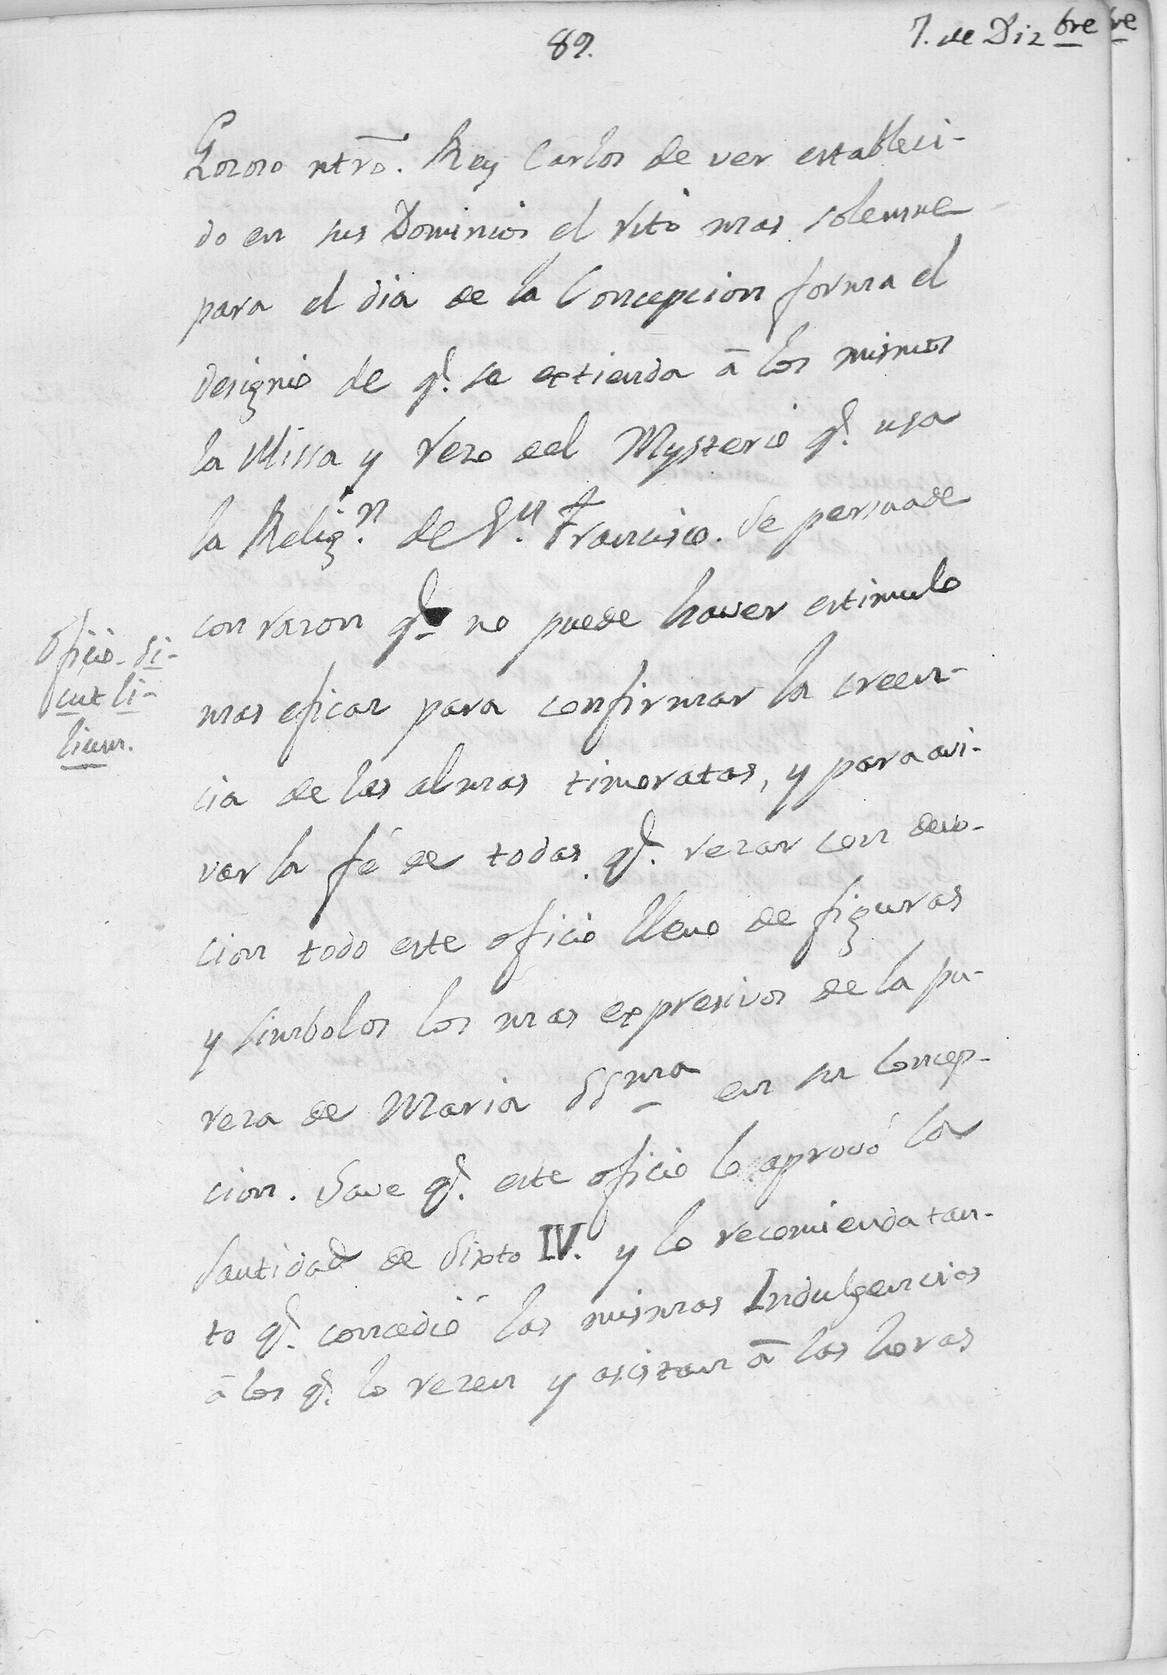 89.
7. de Dizbre
Gozoso ntro. Rey Carlos de ver estableci-
do en sus Dominios el Rito mas solemne
para el dia de la Concepcion forma el
designio de q.e se extienda â los mismos
la Missa y Rezo del Mysterio q.e usa
la Relig.n de S.n Francisco. Se persuade
con razon q.e no puede haver estimulo
mas eficaz para confirmar la creen-
cia de las almas timoratas, y para avi-
var la fé de todas q.e rezar con devo-
cion todo este oficio lleno de figuras
y simbolos los mas expresivos de la pu-
reza de Maria SSma en su Concep-
cion. Save q.e este oficio lo aprovó la
Santidad de Sixto IV. y lo recomienda tan-
to q.e concedió las mismas Indulgencias
â los q.e lo rezen y asistan â las horas
Oficio Si-
cut li-
lium.